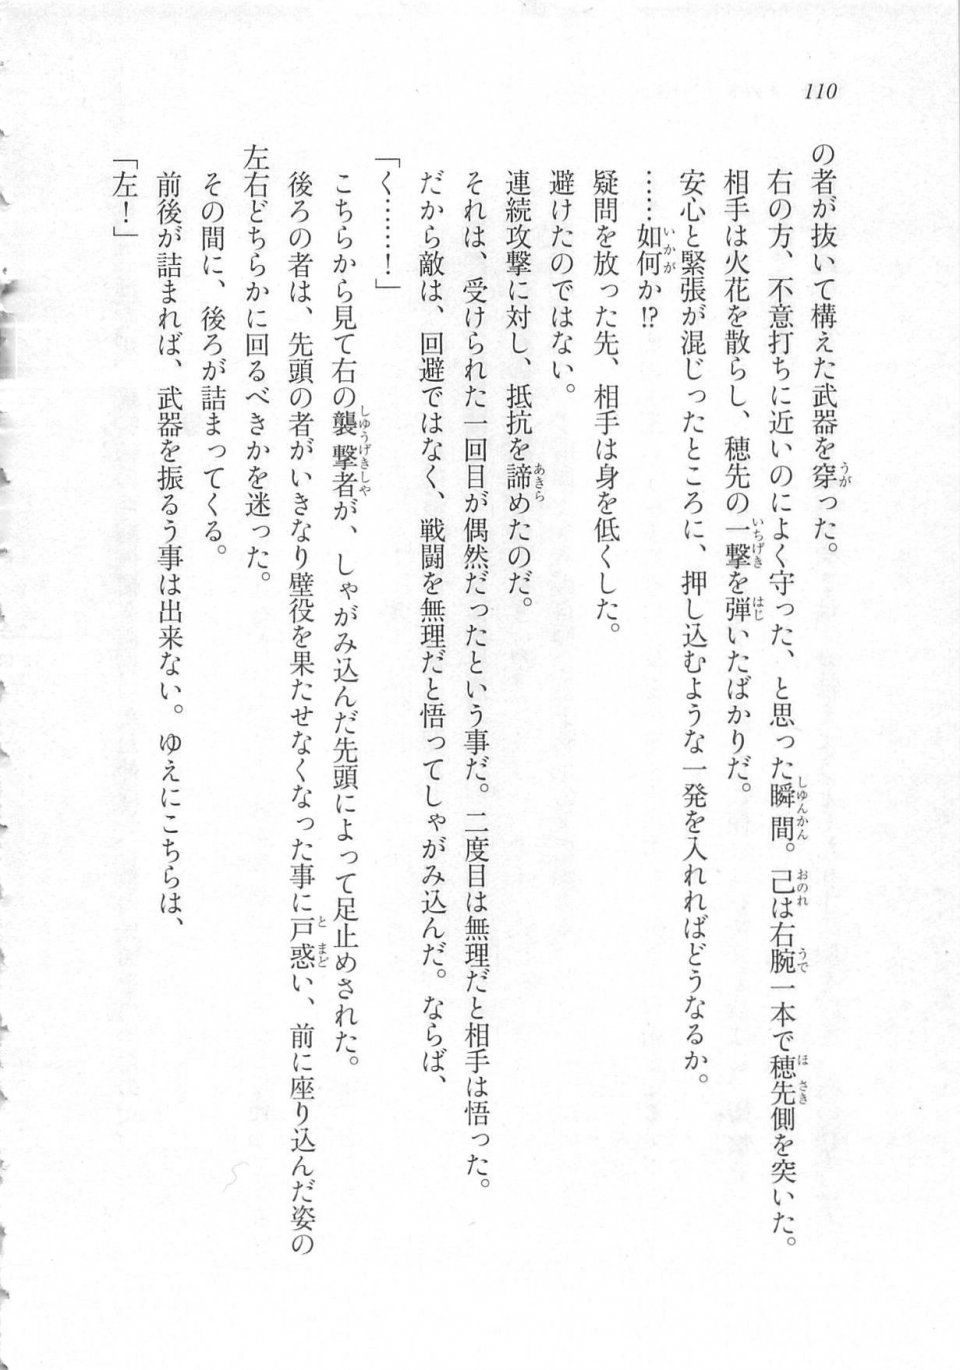 110
の者が抜いて構えた武器を穿った。
右の方、不意打ちに近いのによく守った、と思った瞬間。己は右腕一本で穂先側を突いた。
相手は火花を散らし、穂先の一撃を弾いたばかりだ。
安心と緊張が混じったところに、押し込むような一発を入れればどうなるか。
……如何か!?
疑問を放った先、相手は身を低くした。
避けたのではない。
連続攻撃に対し、抵抗を諦めたのだ。
それは、受けられた一回目が偶然だったという事だ。二度目は無理だと相手は悟った。
だから敵は、回避ではなく、戦闘を無理だと悟ってしゃがみ込んだ。ならば、
「く……！」
こちらから見て右の襲撃者が、しゃがみ込んだ先頭によって足止めされた。
後ろの者は、先頭の者がいきなり壁役を果たせなくなった事に戸惑い、前に座り込んだ姿の
左右どちらかに回るべきかを迷った。
その間に、後ろが詰まってくる。
前後が詰まれば、武器を振るう事は出来ない。ゆえにこちらは、
「左！」